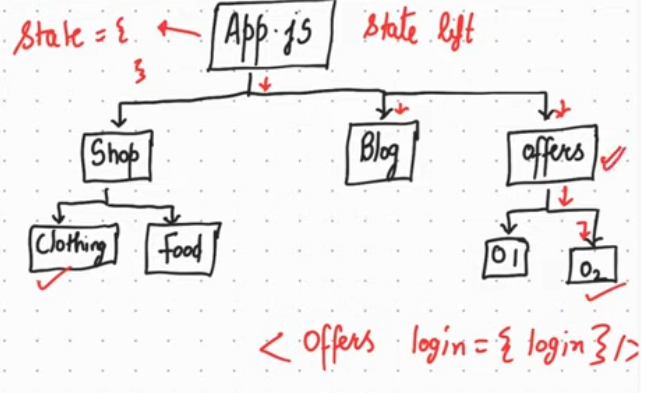 State = {
}
App.js
State lift
Shop
Blog
offers
Clothing
food
O1
O2
< Offers login = { login } />